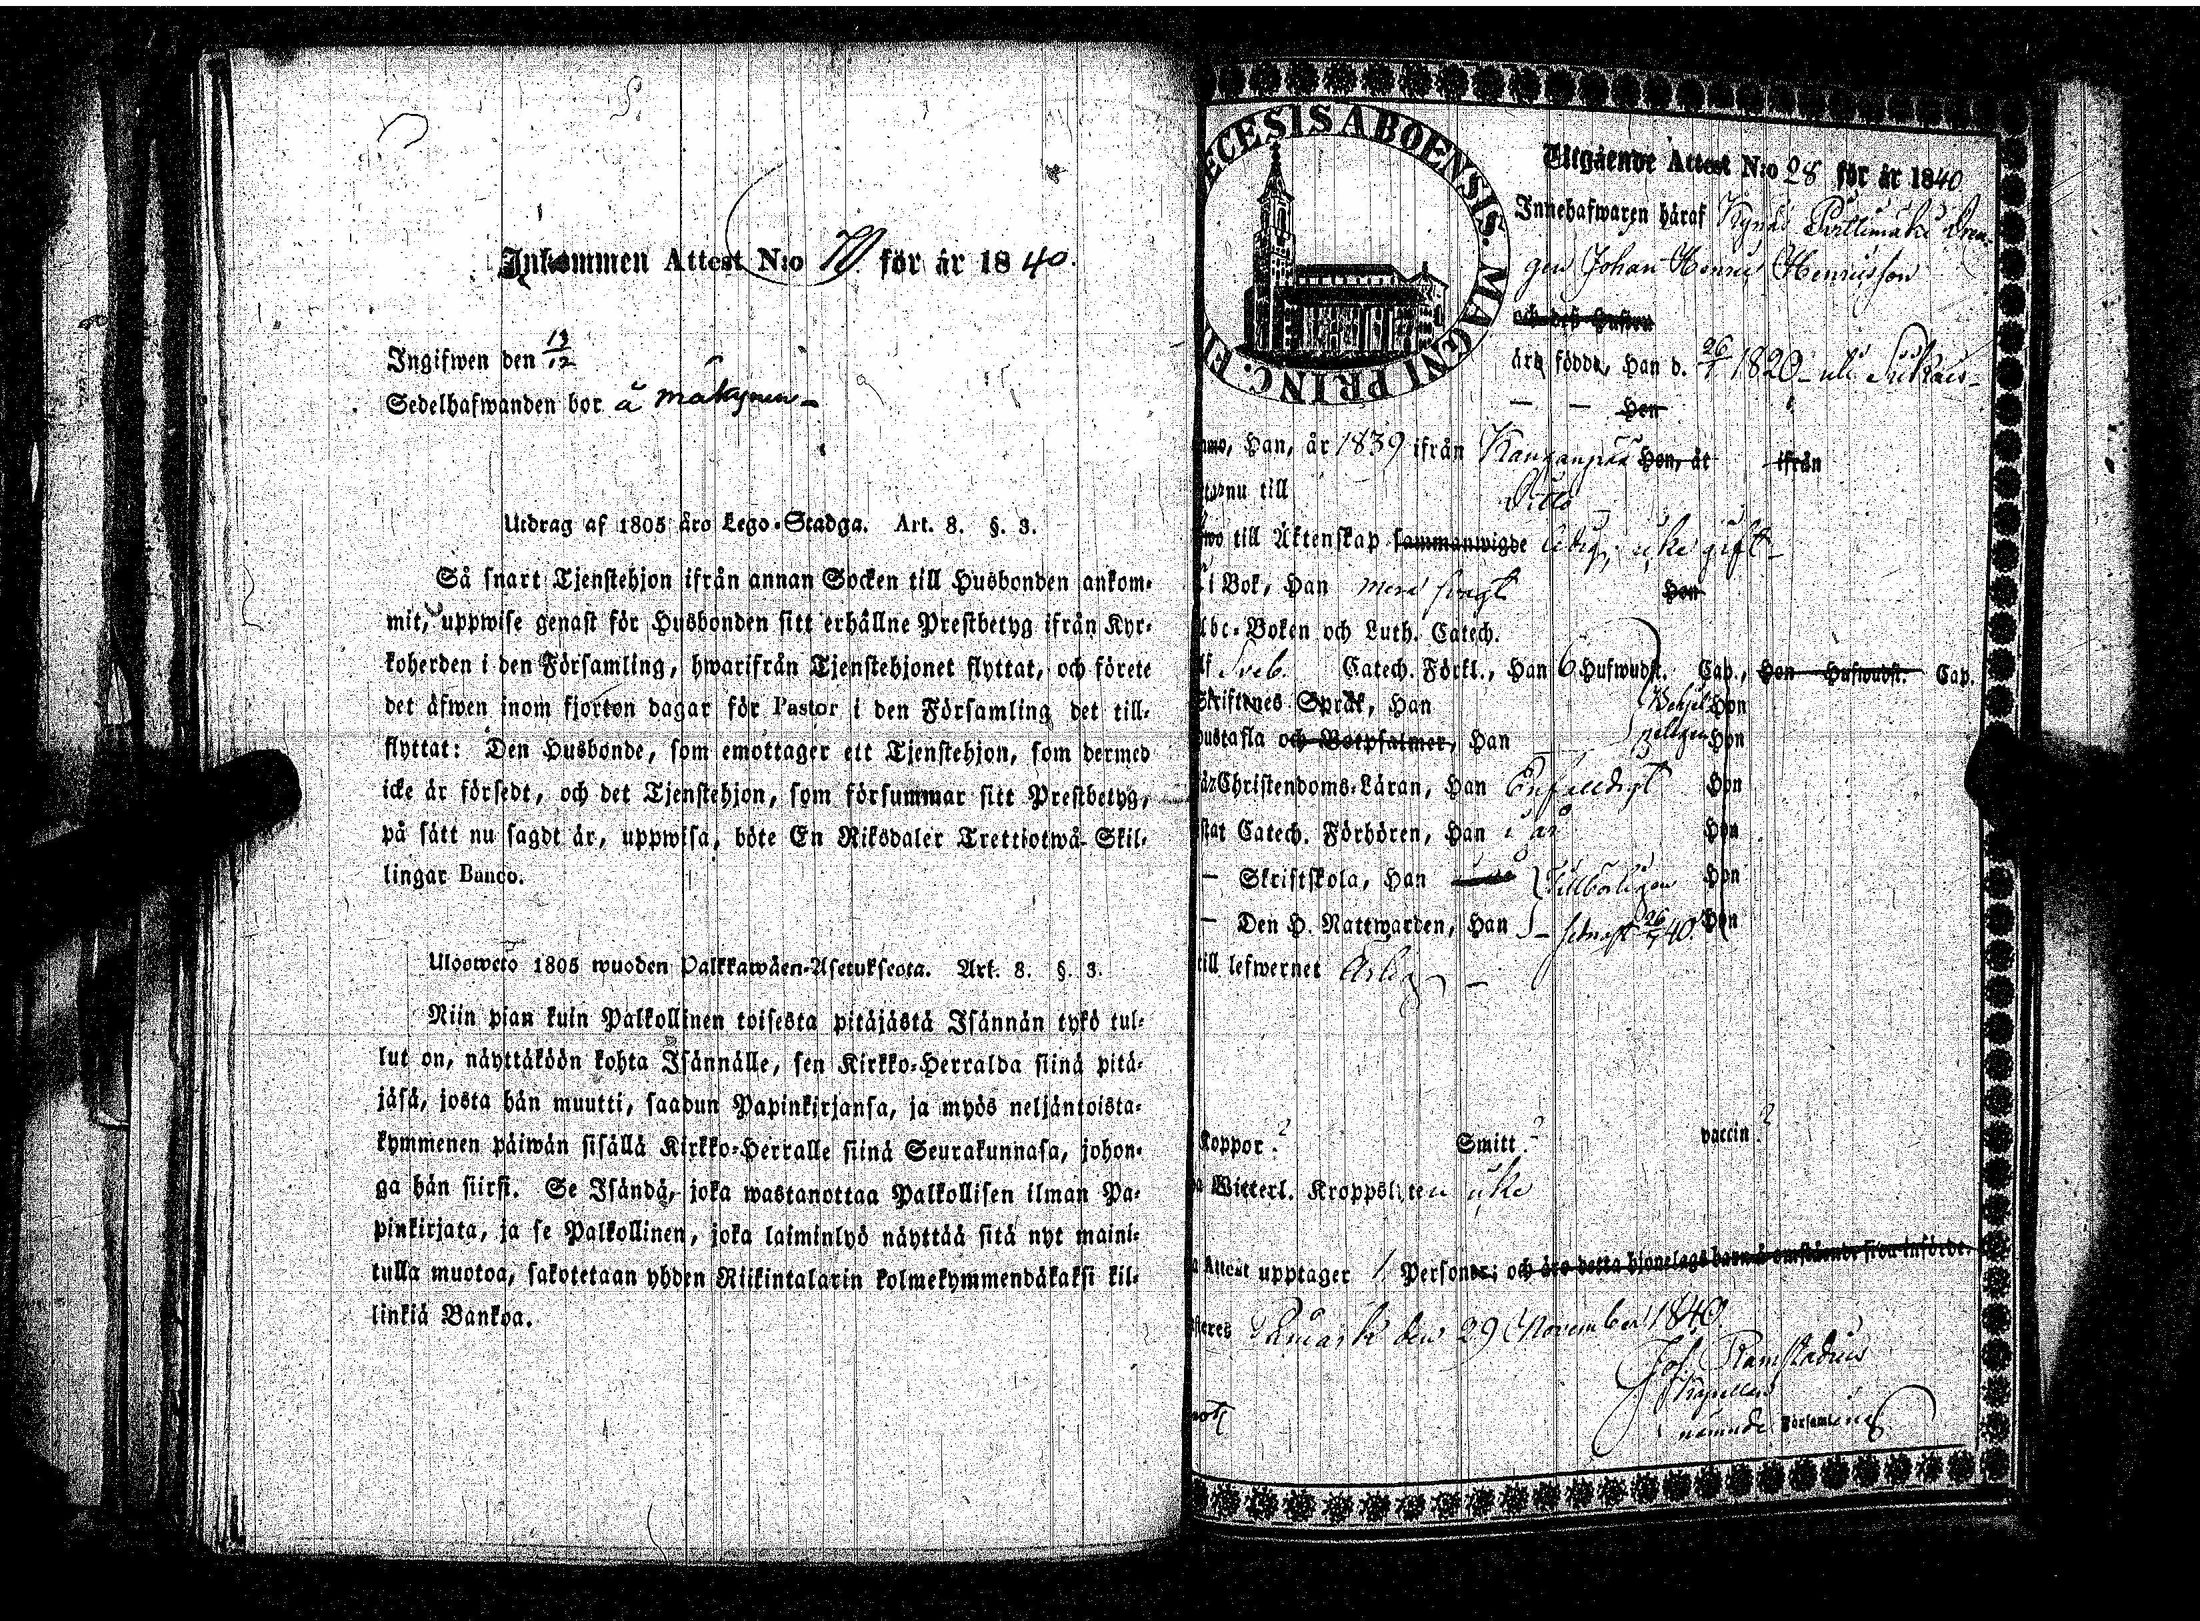 Inkommen Attest N:o 70. för år 1840.
Ingifwen den 13/12
Sedelhafwanden bor å
Utdrag af 1805 års Lego-Stadga. Art. 8. §. 3.
Så snart Tjenstehjon ifrån annan Socken till Husbonden ankom-
mit, uppwise genast för Husbonden sitt erhållne Prestbetyg ifrån Kyr-
koherden i den Församling, hwarifrån Tjenstehjonet flyttat, och förete
det äfwen inom fjorton dagar för Pastor i den Församling det till-
flyttat: Den Husbonde, som emottager ett Tjenstehjon, som dermed
icke är försedt, och det Tjenstehjon, som försummar sitt Prestbetyg,
på sätt nu sagdt är, uppwisa, böte En Riksdaler Trettiotwå Skil-
lingar Banco.
Ulosweto 1805 wuoden Palkkawäen-Asetuksesta. Art. 8. §. 3.
Niin pian kuin Palkollinen toisesta pitäjästä Isännän tykö tul-
lut on, näyttäköön kohta Isännälle, sen Kirkko-Herralda siinä pitä-
jäsä, josta hän muutti, saadun Papinkirjansa, ja myös neljäntoista-
kymmenen päiwän sisällä Kirkko-Herralle siinä Seurakunnasa, johon-
ga hän siirsi. Se Isändä, joka wastanottaa Palkollisen ilman Pa-
pinkirjata, ja se Palkollinen, joka laiminlyö näyttää sitä nyt maini-
tulla muotoa, sakotetaan yhden Riikintalarin kolmekymmendäkaksi kil-
linkiä Bankoa.
ECESIS ABOENSIS. MAGNI PRINC. FI
Utgående Attest N:o 28 för år 1840
Innehafwaren häraf
gen Johan Henric Henricsson
och dess Hustru
äro födde, Han d. 26/1 1820
— — Hon
Han, år 1839 ifrån Hon, år ifrån
nu till Ditto
till Äktenskap sammanwigde ledig, icke gift
i Bok, Han swagt Hon
Abc-Boken och Luth. Catech.
Sveb. Catech. Förkl., Han 6 Hufwudst. Cap., Hon Hufwudst. Cap.
Skriftenes Språk, Han Hon
Hustafla och Botpsalmer, Han Hon
Christendoms-Läran, Han Enfaldigt Hon
Catech. Förhören, Han i år Hon
— Skriftskola, Han Hon
— Den H. Nattwarden, Han Hon
till lefwernet Ärlig —
Koppor? Smitt? vaccin?
Witterl. Kroppslyten icke
Attest upptager 1 Personer; och äro detta hjonelags barn å omstående sida införde.
den 29 November 1840
Joh. Ramstadius
Kapellan
nämnde Församling